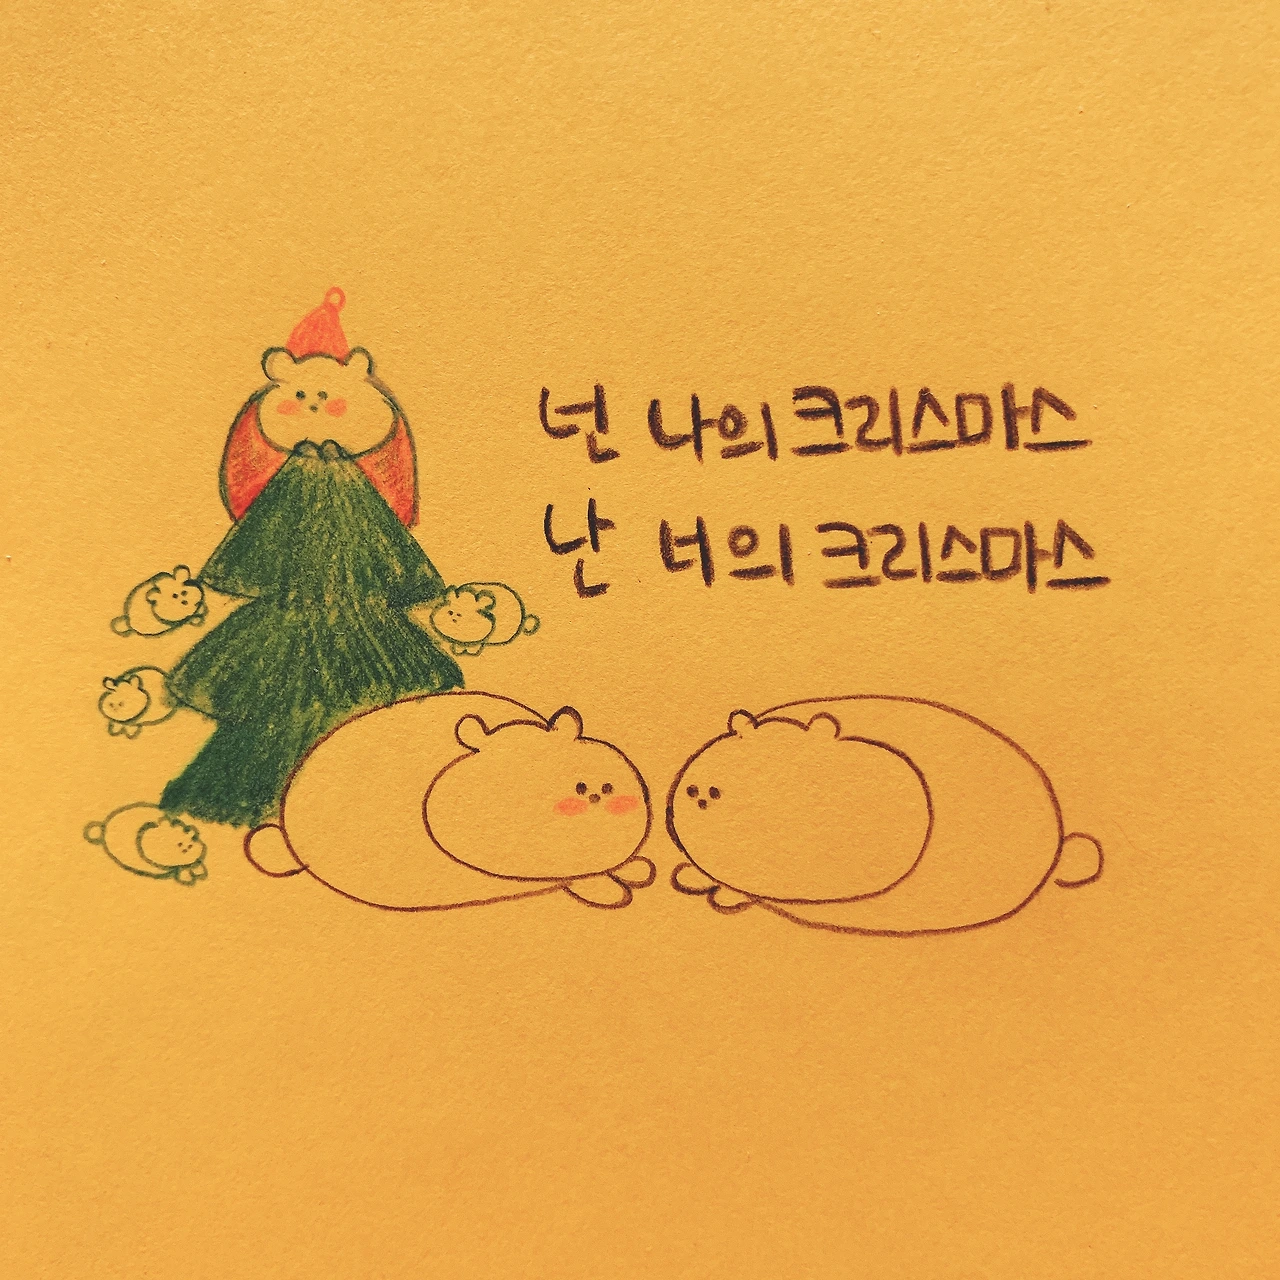 넌 나의 크리스마스
난 너의 크리스마스